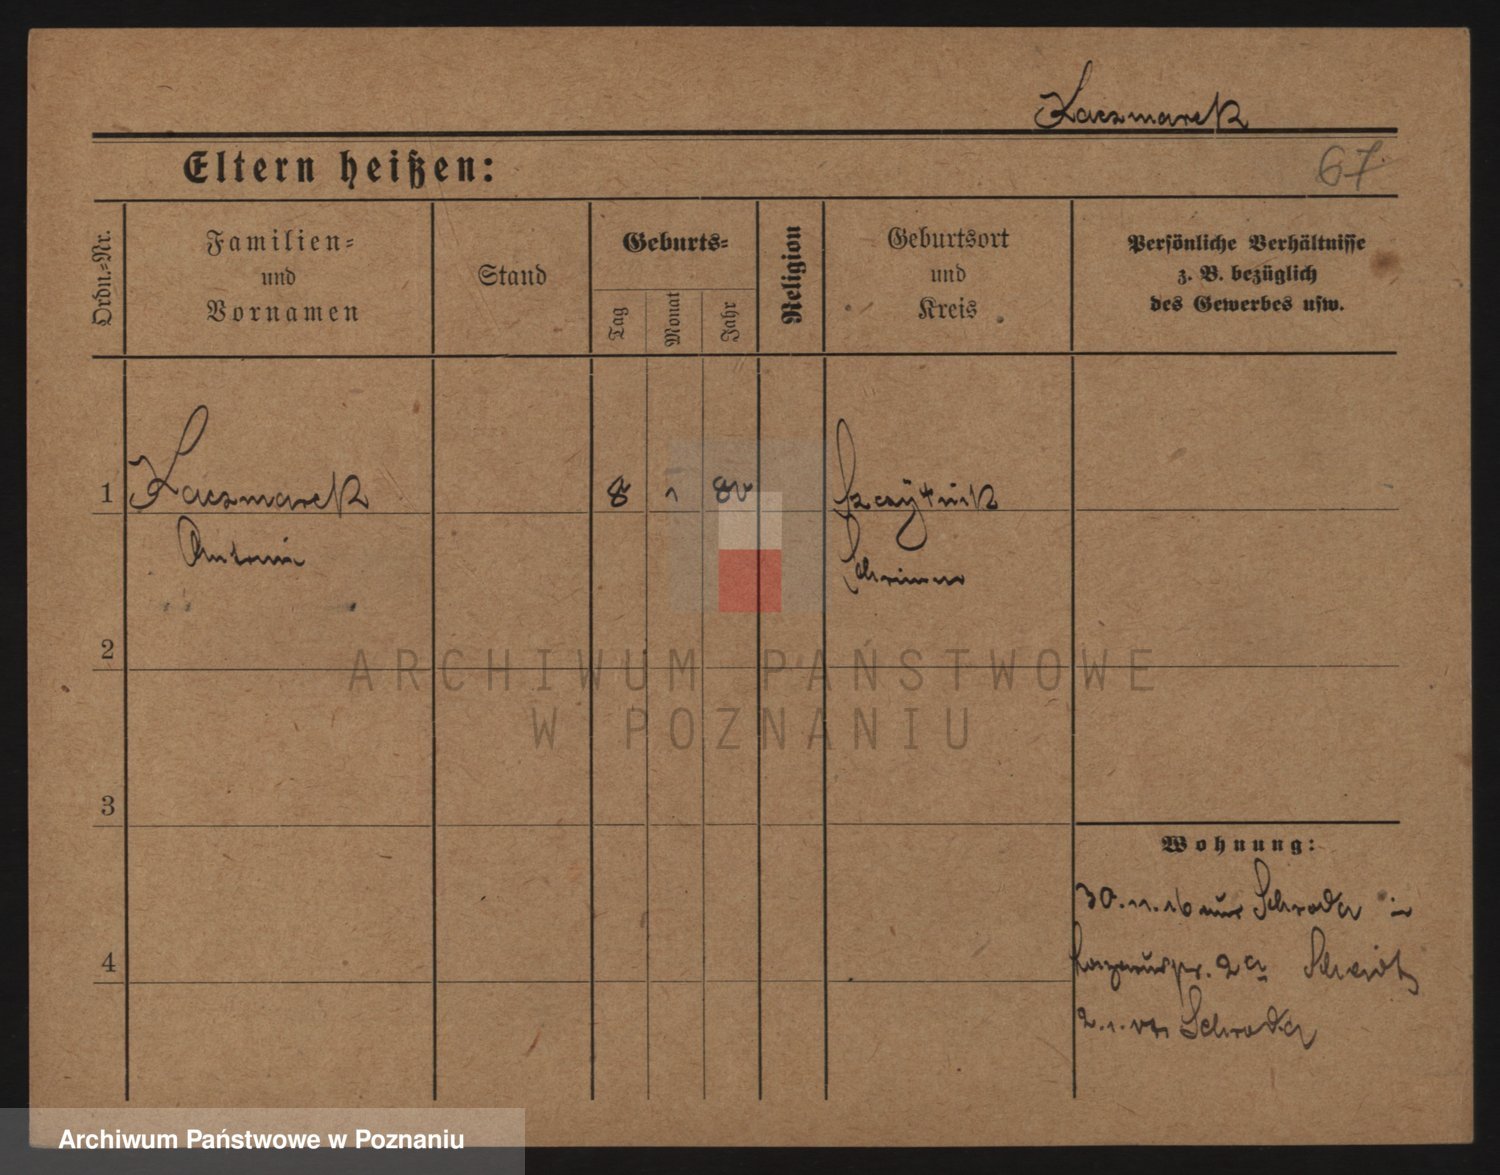 Kaczmarek
Eltern heißen:
67
Ordn.=Nr.
Familien=
und
Vornamen
Stand
Geburts=
Tag
Monat
Jahr
Religion
Geburtsort
und
Kreis
Persönliche Verhältnisse
z. B. bezüglich
des Gewerbes usw.
1
Kaczmarek
8
1
Szczytnik
Antonie
Schrimm
2
ARCHIWUM PAŃSTWOWE
W POZNANIU
3
Wohnung:
30.11.16 Schroda in
2a
4
2.1. Schroda
Archiwum Państwowe w Poznaniu